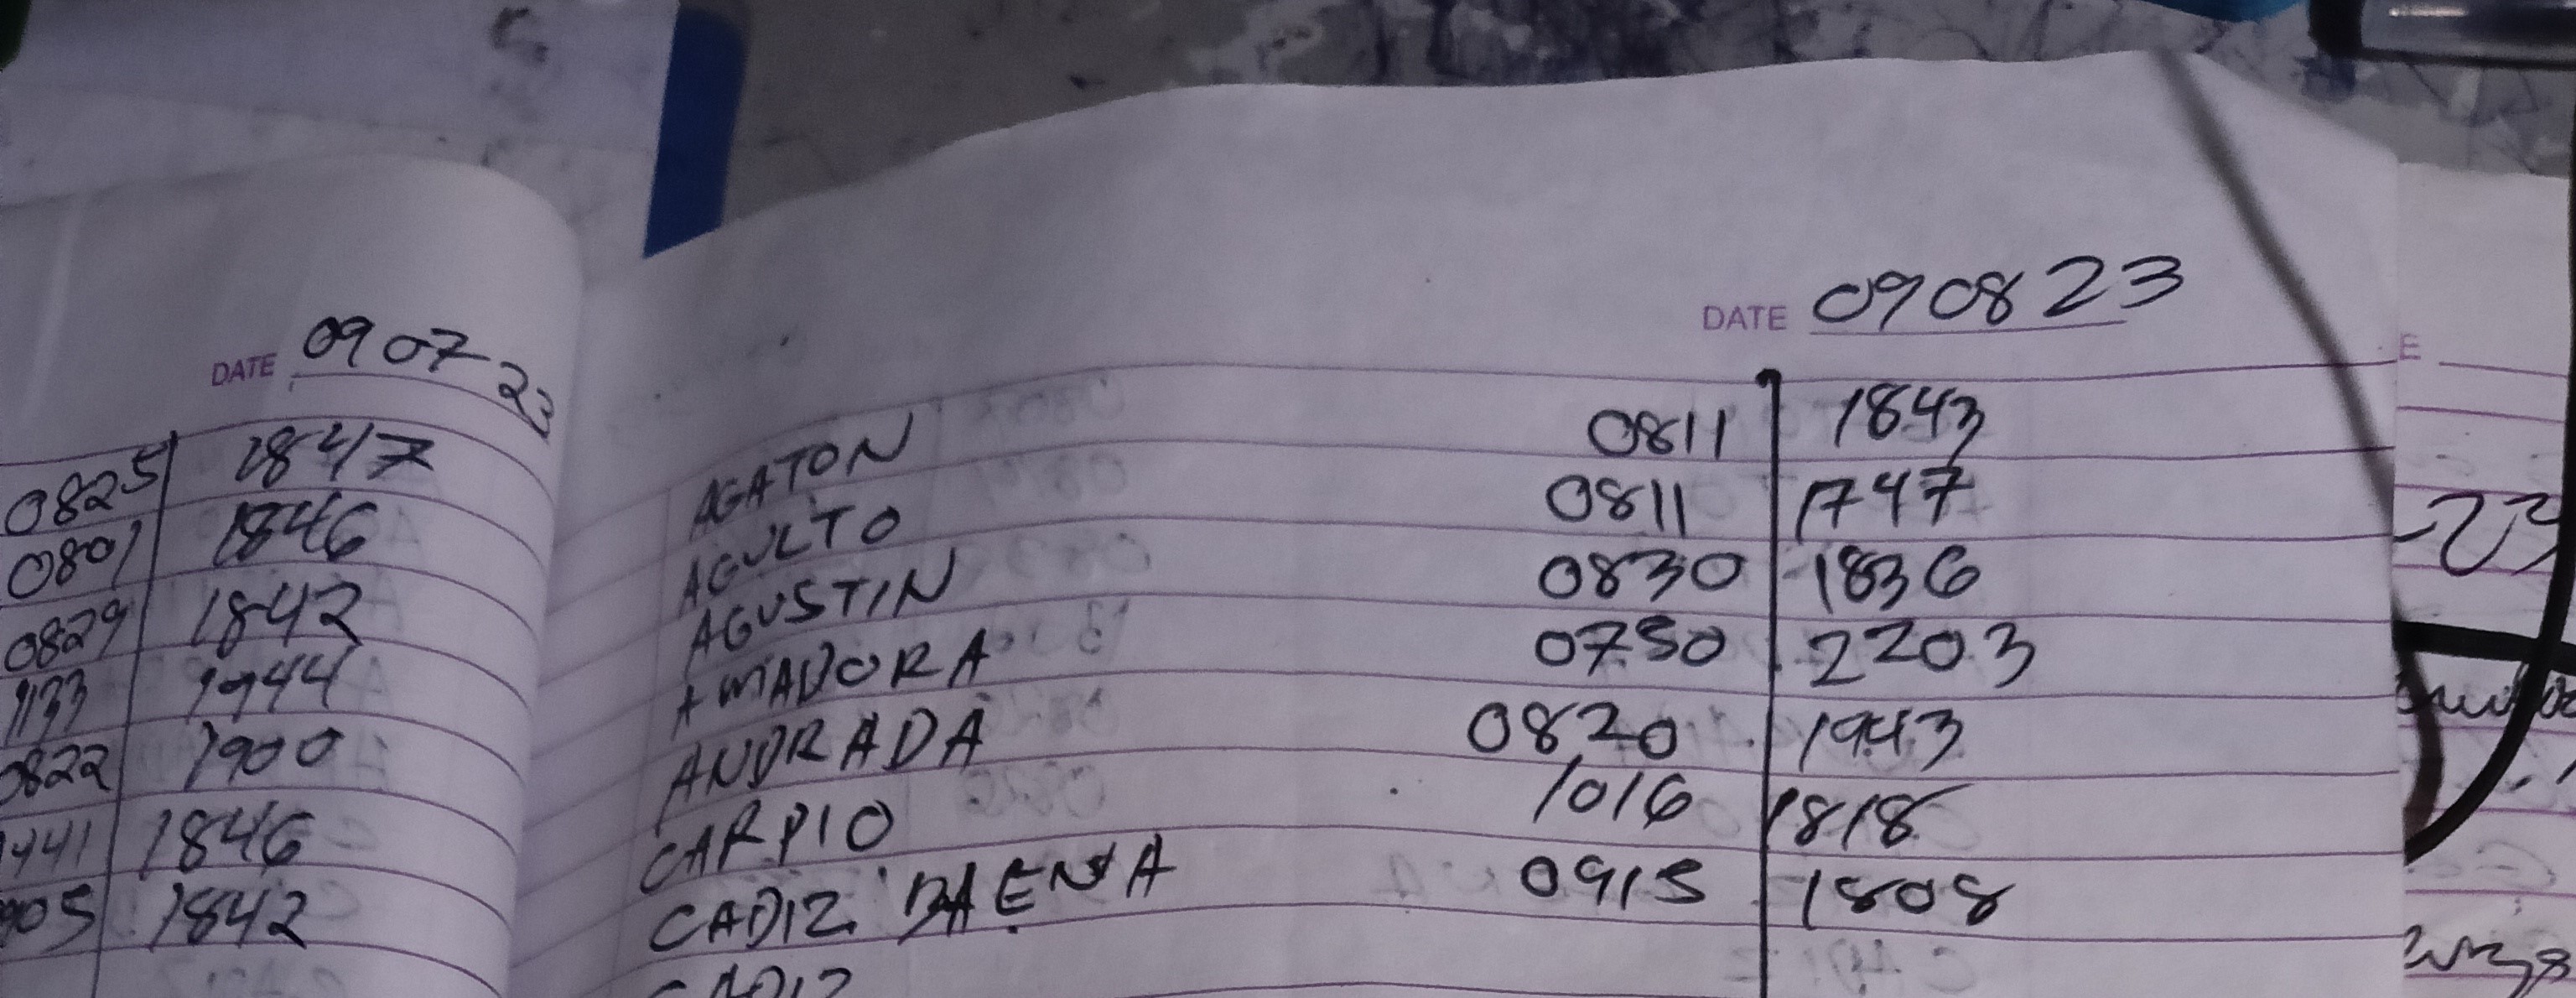 DATE 09 07 23
0825 1847
0801 1846
0829 1842
1133 1944
0822 1900
1441 1846
905 1842
DATE 090823
AGATON 0811 1843
AGULTO 0811 1747
AGUSTIN 0830 1836
AMADORA 0750 2203
ANDRADA 0820 1943
CARPIO 1016 1818
CADIZ BAENA 0915 1808
CADIZ
E
-23